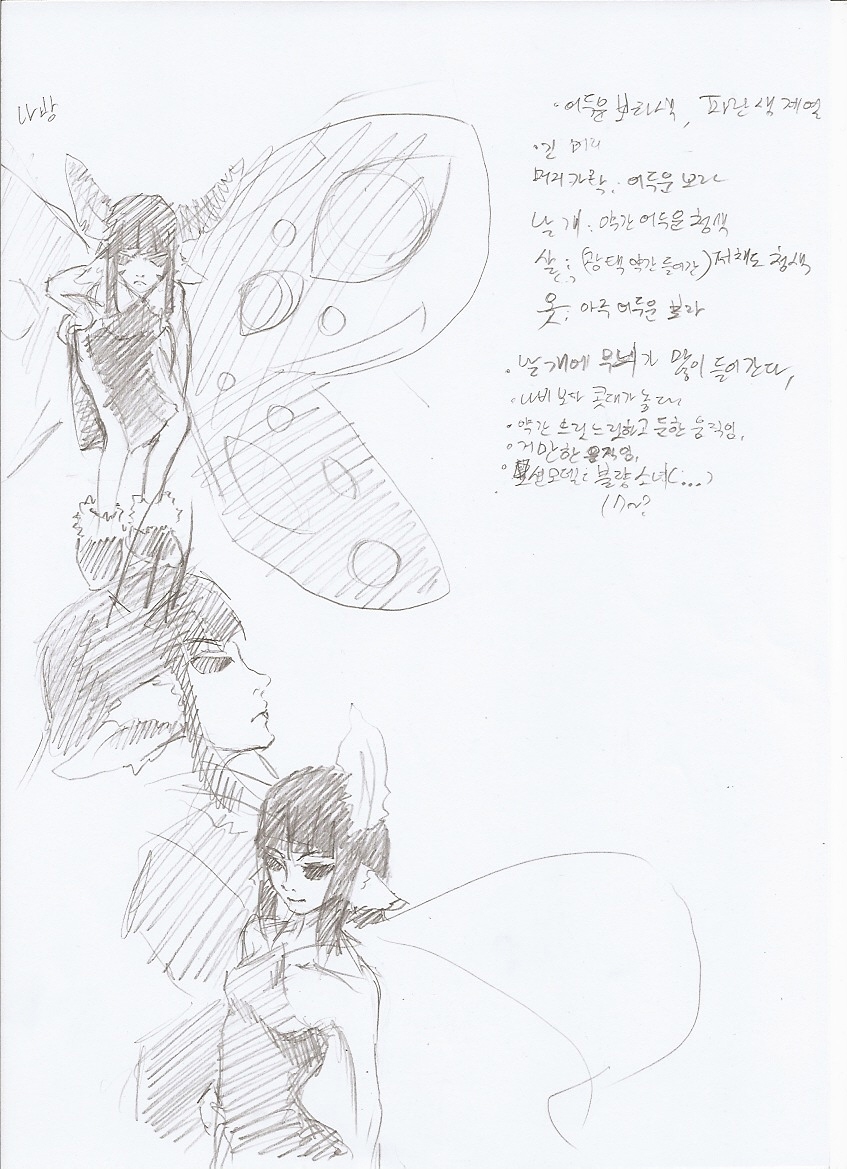 나방
· 어두운 보라색, 파란색 계열
· 긴 머리
머리카락 : 어두운 보라
날개 : 약간 어두운 청색
살 : (광택 약간 들어간) 저채도 청색
옷 : 아주 어두운 보라
· 날개에 무늬가 많이 들어간다.
· 나비보다 콧대가 높다.
· 약간 흐릿느릿하고 둔한 움직임.
· 거만한 움직임.
모션모델 : 불량소녀(...)